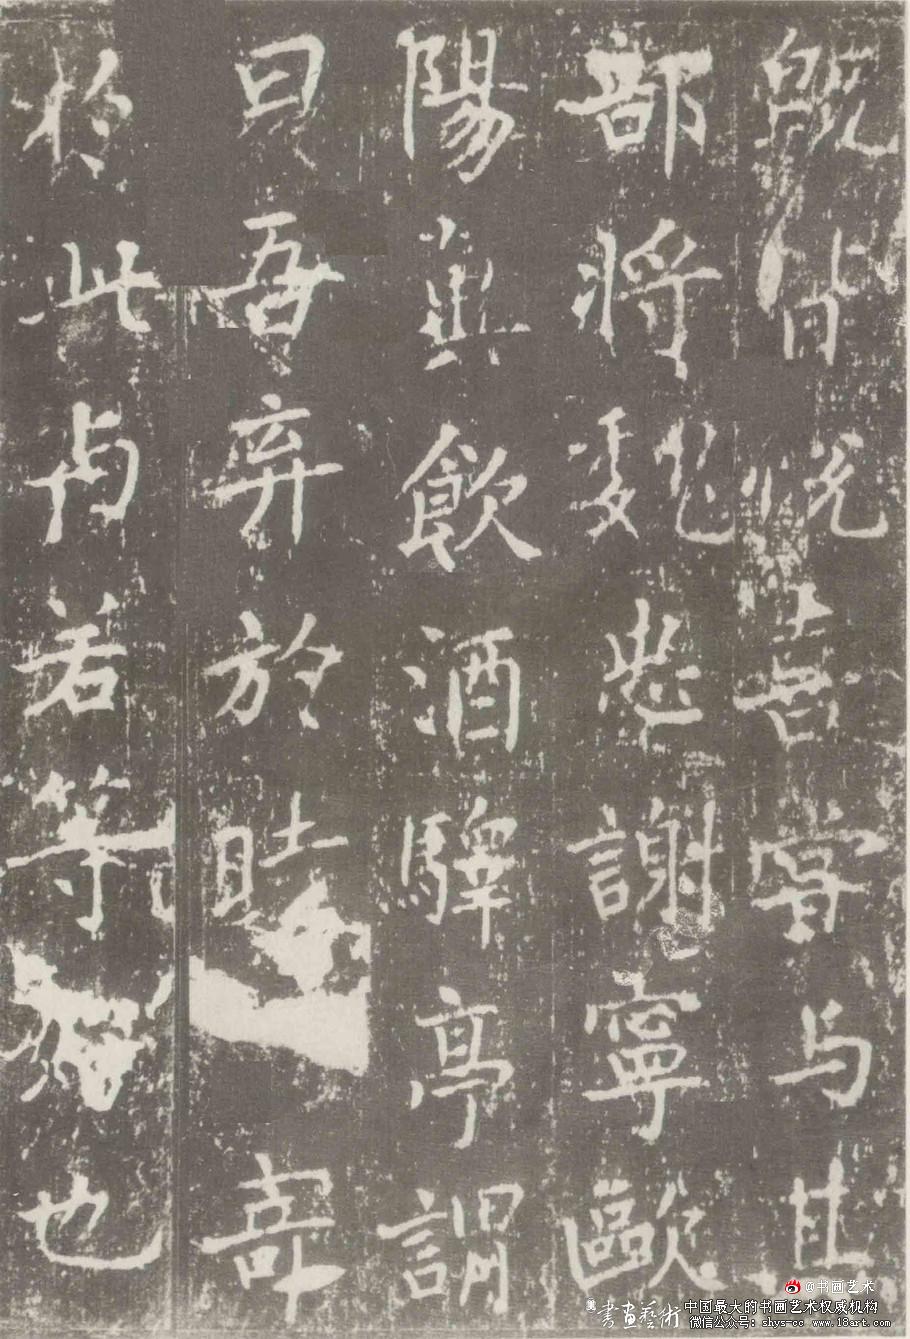 既皆悅喜嘗与其
部將魏忠謝寧歐
陽翼飲酒驛亭謂
曰吾弃於時寄
於此与若等也
@书画艺术
書畫藝術
中国最大的书画艺术权威机构
微信公众号：shys-cc www.18art.com